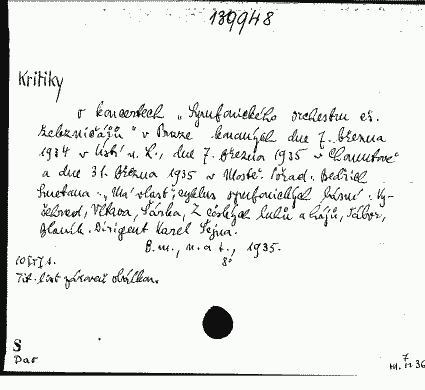 139948
Kritiky
o koncertech „Symfonického orchestru čs.
železničářů" v Praze konaných dne 7. března
1934 v Ústí n. L., dne 7. března 1935 v Chomutově
a dne 31. března 1935 v Mostě. Pořad. Bedřich
Smetana: „Má vlast", cyklus symfonických básní: Vy-
šehrad, Vltava, Šárka, Z českých luhů a hájů, Tábor,
Blaník. Dirigent Karel Šejna.
B. m., n. a t., 1935.
8°
Tit. list zároveň obálkou.
S
Dar